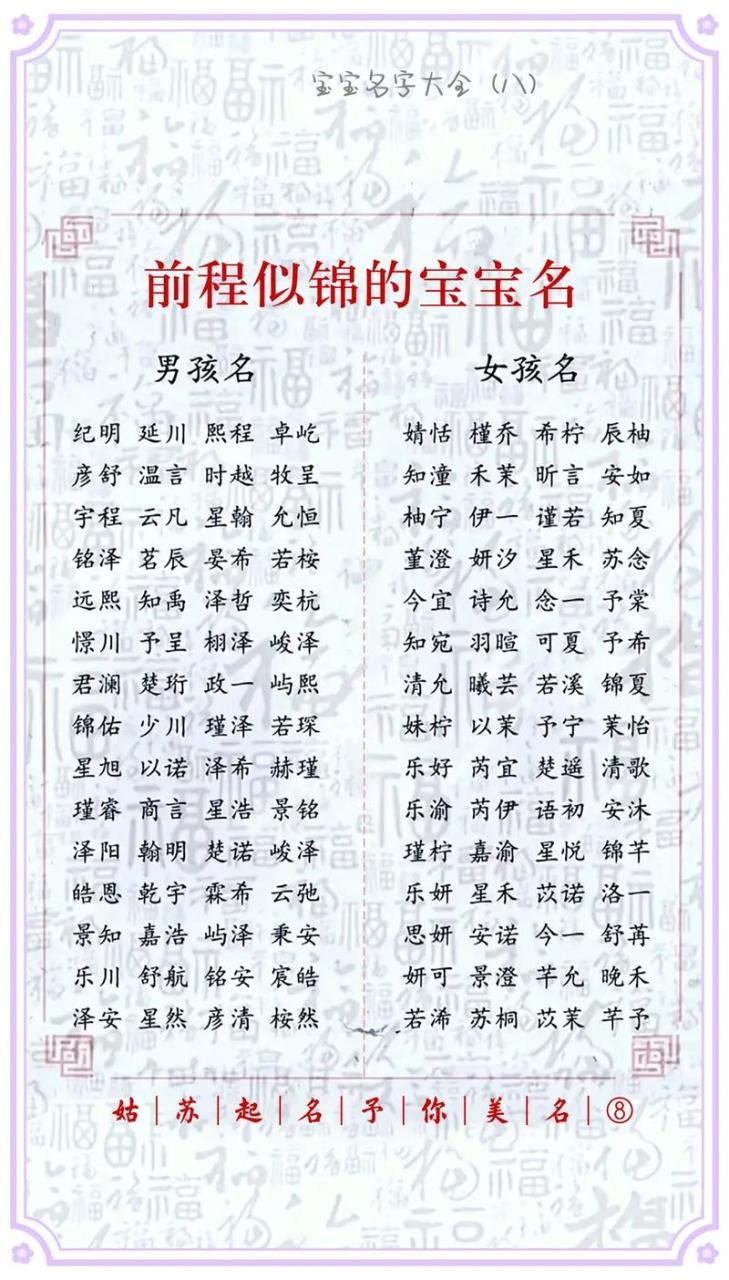 宝宝名字大全（八）
前程似锦的宝宝名
男孩名 女孩名
纪明 延川 熙程 卓屹 婧恬 槿乔 希柠 辰柚
彦舒 温言 时越 牧呈 知潼 禾茉 昕言 安如
宇程 云凡 星翰 允恒 柚宁 伊一 谨若 知夏
铭泽 茗辰 晏希 若桉 堇澄 妍汐 星禾 苏念
远熙 知禹 泽哲 奕杭 今宜 诗允 念一 予棠
憬川 予呈 栩泽 峻泽 知宛 羽暄 可夏 予希
君澜 楚珩 政一 屿熙 清允 曦芸 若溪 锦夏
锦佑 少川 瑾泽 若琛 姝柠 以茉 予宁 茉怡
星旭 以诺 泽希 赫瑾 乐好 芮宜 楚遥 清歌
瑾睿 商言 星浩 景铭 乐渝 芮伊 语初 安沐
泽阳 翰明 楚诺 峻泽 瑾柠 嘉渝 星悦 锦芊
皓恩 乾宇 霖希 云弛 乐妍 星禾 苡诺 洛一
景知 嘉浩 屿泽 秉安 思妍 安诺 今一 舒苒
乐川 舒航 铭安 宸皓 妍可 景澄 芊允 晚禾
泽安 星然 彦清 桉然 若浠 苏桐 苡茉 芊予
姑|苏|起|名|予|你|美|名|⑧